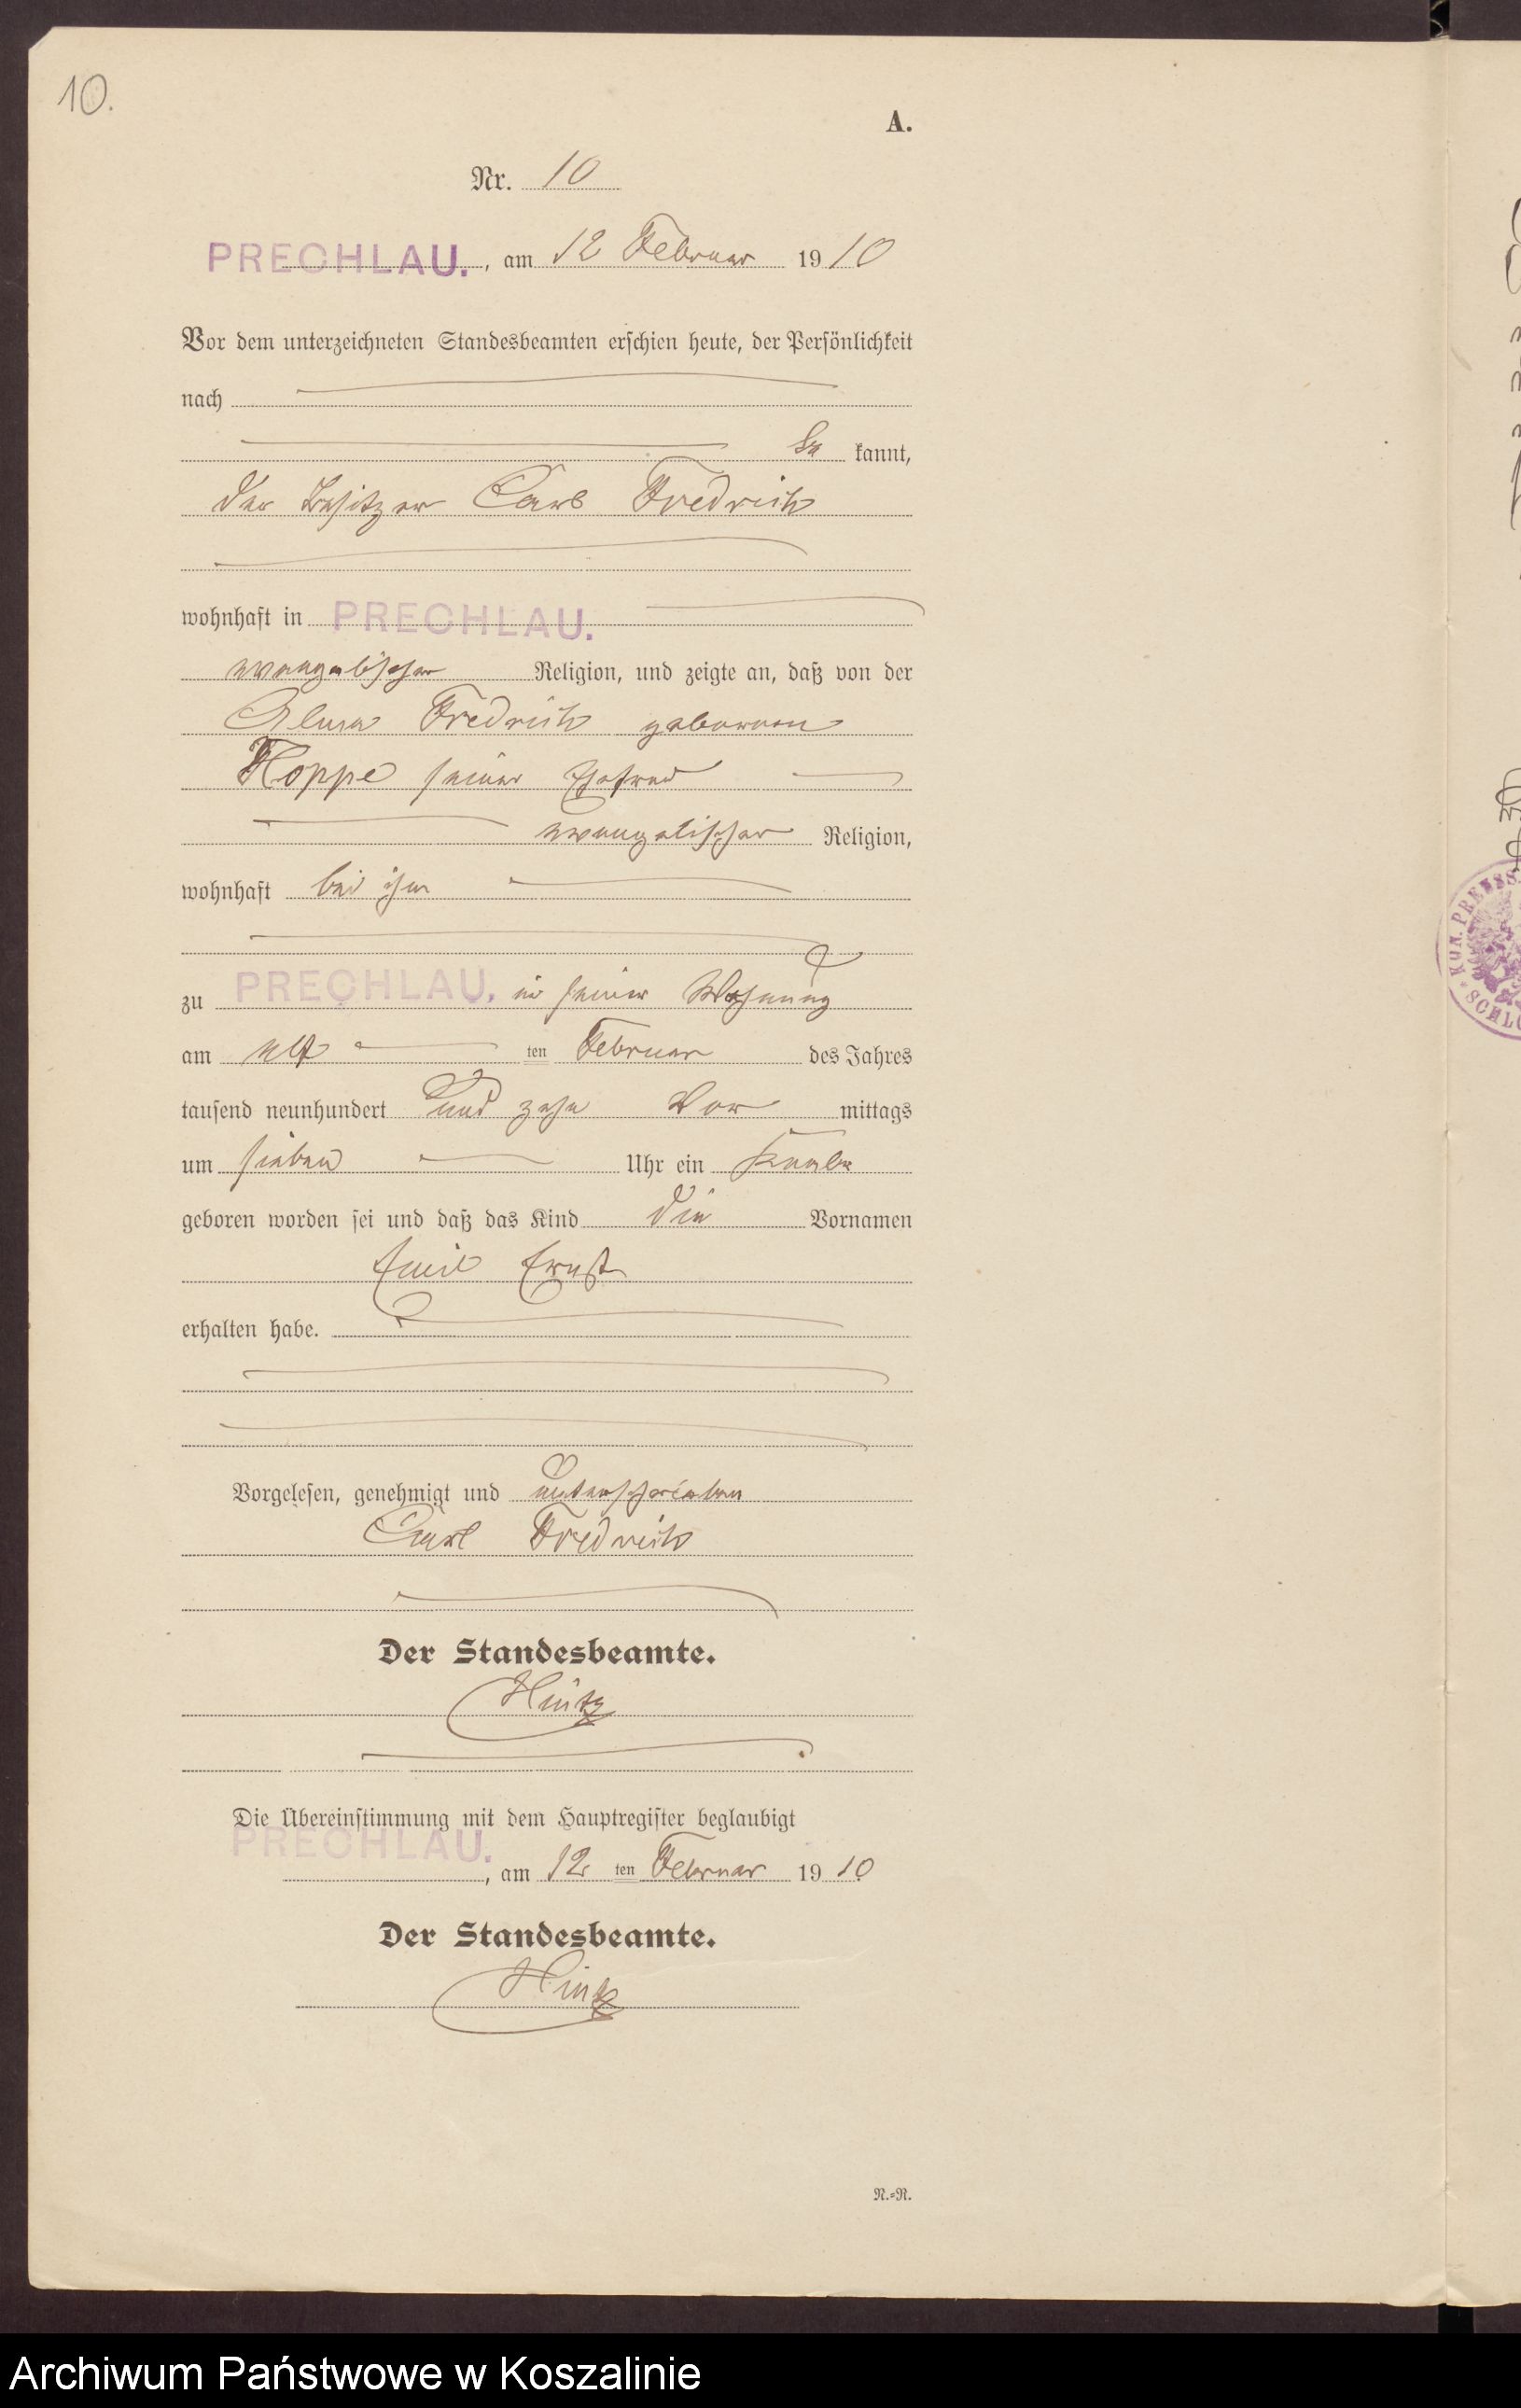 10.
A.
Nr. 10
PRECHLAU. , am 12 Februar 1910
Vor dem unterzeichneten Standesbeamten erschien heute, der Persönlichkeit
nach
be kannt,
der Besitzer Carl Fredrich
wohnhaft in PRECHLAU.
evangelischer Religion, und zeigte an, daß von der
Fredrich geborenen
Hoppe seiner Ehefrau
evangelischer Religion,
wohnhaft bei ihm
zu PRECHLAU, in seiner Wohnung
am elf ten Februar des Jahres
tausend neunhundert und zehn Vor mittags
um sieben Uhr ein Knabe
geboren worden sei und daß das Kind die Vornamen
Emil Ernst
erhalten habe.
Vorgelesen, genehmigt und unterschrieben
Carl Fredrich
Der Standesbeamte.
Hintz
Die Übereinstimmung mit dem Hauptregister beglaubigt
PRECHLAU. , am 12 ten Februar 1910
Der Standesbeamte.
Hintz
N.=R.
KÖN. PREUSS
Archiwum Państwowe w Koszalinie